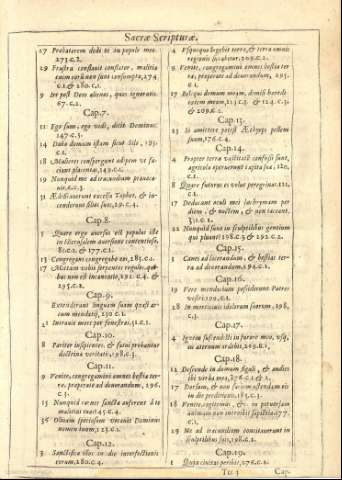 Sacræ Scripturæ.
27 Probatorem dedi te in populo meo.
273.c.2.
29 Frustra conflavit conflator, malitia
enim eorum non sunt consumpta, 274
c.1. & 280.c.1.
9 Ire post Deos alienos, quos ignoratis.
67.c.2.
Cap.7.
11 Ego sum, ego vidi, dicit Dominus.
147.c.3.
14 Dabo domum istam sicut Silo, 185.
c.1.
18 Mulieres conspergunt adipem ut fa-
ciant placentas, 149.c.1.
19 Nunquid me ad iracundiam provoca-
31 Ædificaverunt excelsa Tophet, & in-
cenderunt filios suos, 29.c.4.
Cap.8.
5 Quare ergo aversus est populus iste
in Hierusalem aversione contentiosa,
80.c.2. & 177.c.1.
13 Congregans congregabo eos, 285.c.2.
17 Mittam vobis serpentes regulos, qui-
bus non est incantatio, 191.c.4. &
295.c.2.
Cap.9.
Extenderunt linguam suam quasi ar-
cum mendatij, 250.c.1.
21 Intravit mors per fenestras, 51.c.1.
Cap.10.
8 Pariter insipientes, & fatui probantur
doctrina veritatis, 198.c.3.
Cap.11.
9 Venite, congregamini omnes bestiæ ter-
ræ, properate ad devorandum, 196.
c.3.
15 Nunquid carnes sanctæ auferent à te
malitias tuas? 45.c.4.
16 Olivam speciosam vocavit Dominus
nomen tuum, 123.c.1.
Cap.12.
3 Sanctifica illos in die interfectionis
eorum, 280.c.4.
4 Usquequo lugebit terra, & herba omnis
regionis siccabitur, 209.c.1.
9 Venite, congregamini omnes bestiæ ter-
ræ, properate ad devorandum, 295.
c.1.
17 Reliqui domum meam, dimisi heredi-
tatem meam, 113.c.3. & 114.c.3.
& 209.c.2.
Cap.13.
23 Si mutare potest Æthyops pellem
suam, 176.c.4.
Cap.14.
4 Propter terræ vastitatē confusi sunt,
agricolæ operuerunt capita sua, 120.
c.1.
8 Quare futurus es velut peregrinus, 122.
c.1.
17 Deducant oculi mei lachrymam per
diem, & noctem, & non taceant,
311.c.2.
22 Nunquid sunt in sculptilibus gentium
qui pluant? 198.c.3 & 292.c.2.
Cap.15.
3 Canes ad lacerandum, & bestias ter-
ræ ad devorandum, 194.c.2.
Cap.16.
19 Vere mendacium possiderunt Patres
vestri, 120.c.2.
18 In morticinis idolorum suorum, 198.
c.3.
Cap.17.
4 Ignem succendisti in furore meo, usq;
in æternum ardebit, 269.c.1.
Cap.18.
2 Descende in domum figuli, & audies
ibi verba mea, 276.c.1 & 2.
17 Dorsum, & non faciem ostendam eis
in die perditionis, 183.c.3.
18 Venite, cogitemus, &
177.
c.1.
29 Me ad iracundiam concitaverunt in
sculptilibus suis, 198.c.2.
Cap.19.
1 276.c.2.
Ttt 3 Cap.